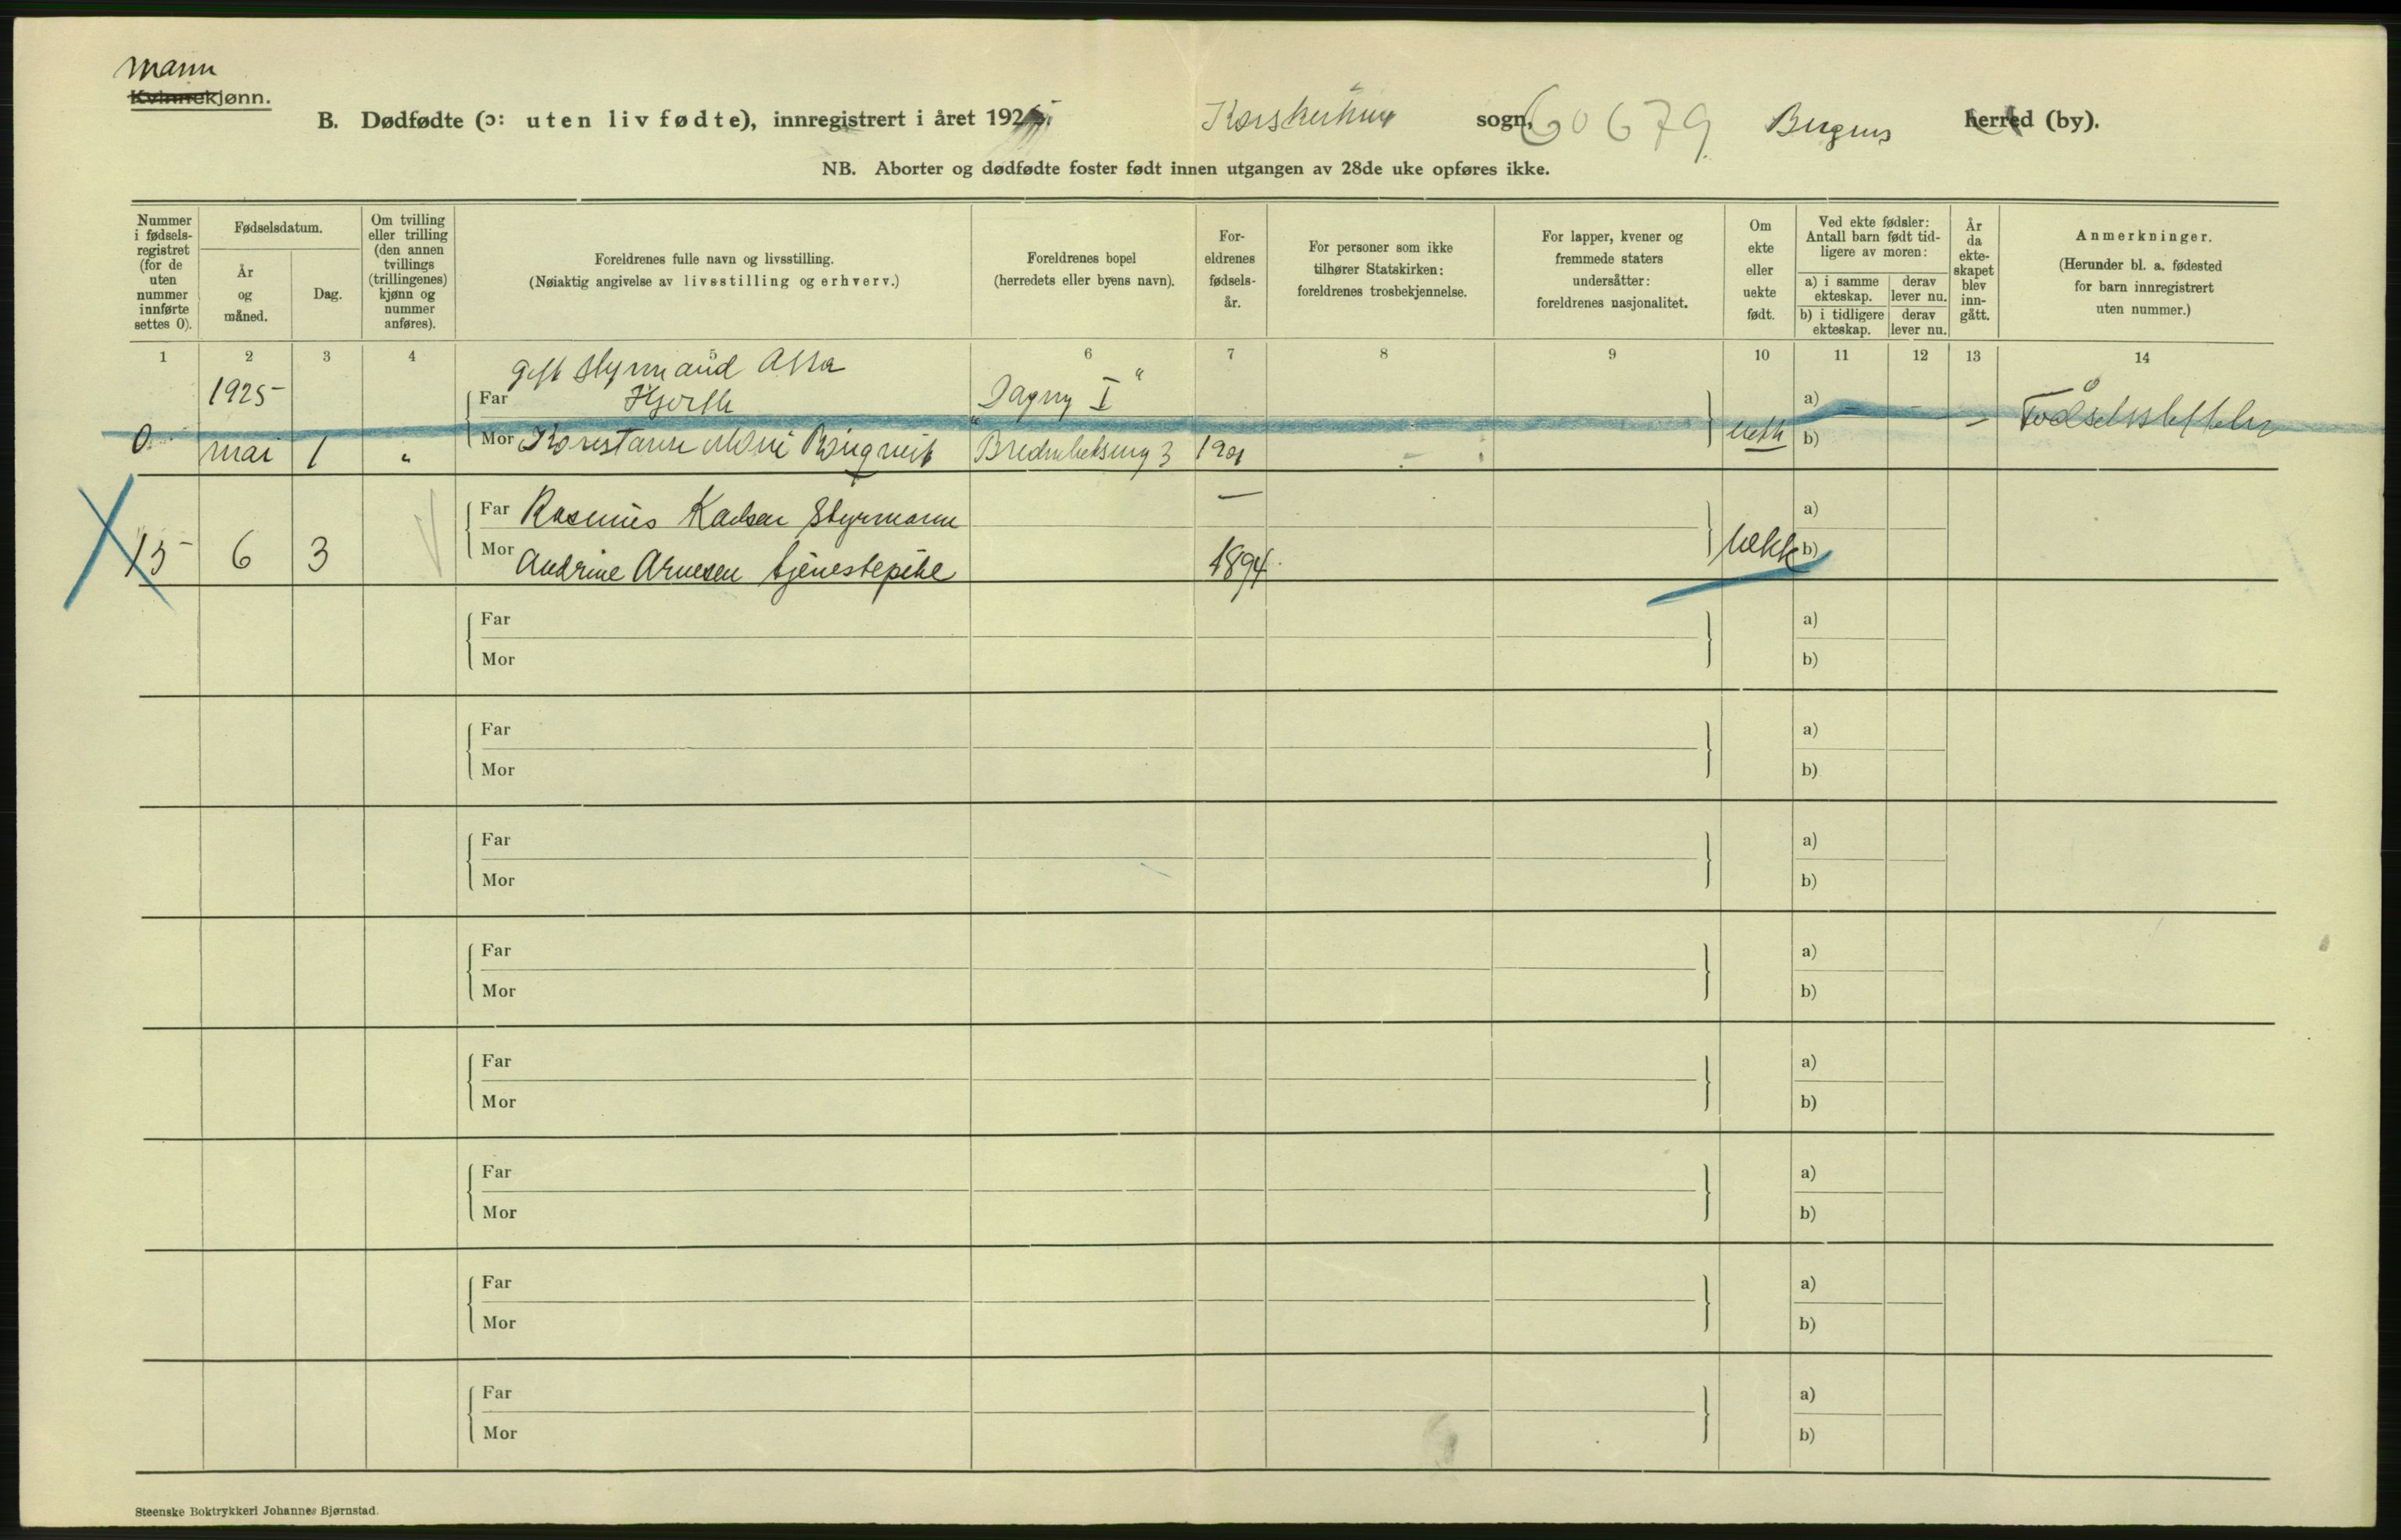 Mann
Kvinnekjønn.
B. Dødfødte (ɔ: uten liv fødte), innregistrert i året 1925. Korskirkens sogn, 60679 Bergens herred (by).
NB. Aborter og dødfødte foster født innen utgangen av 28de uke opføres ikke.
Nummer i fødsels-registret (for de uten nummer innførte settes 0).
Fødselsdatum.
År og måned.
Dag.
Om tvilling eller trilling (den annen tvillings (trillingenes) kjønn og nummer anføres).
Foreldrenes fulle navn og livsstilling.
(Nøiaktig angivelse av livsstilling og erhverv.)
Foreldrenes bopel
(herredets eller byens navn).
For-eldrenes fødsels-år.
For personer som ikke tilhører Statskirken: foreldrenes trosbekjennelse.
For lapper, kvener og fremmede staters undersåtter: foreldrenes nasjonalitet.
Om ekte eller uekte født.
Ved ekte fødsler: Antall barn født tid-ligere av moren:
a) i samme ekteskap.
derav lever nu.
b) i tidligere ekteskap.
derav lever nu.
År da ekte-skapet blev inn-gått.
Anmerkninger.
(Herunder bl. a. fødested for barn innregistrert uten nummer.)
1 2 3 4 5 6 7 8 9 10 11 12 13 14
gift Styrmand
1925 Far Hjorth "Dagny I" a) – – –
0. mai 1 " Mor 1901 uekte b)
Far Rasmus Karlsen Styrmann — a)
15 6 3 Mor Andrine Arnesen tjenestepike 1894 uekte b)
Far a)
Mor b)
Far a)
Mor b)
Far a)
Mor b)
Far a)
Mor b)
Far a)
Mor b)
Far a)
Mor b)
Far a)
Mor b)
Far a)
Mor b)
Steenske Boktrykkeri Johannes Bjørnstad.